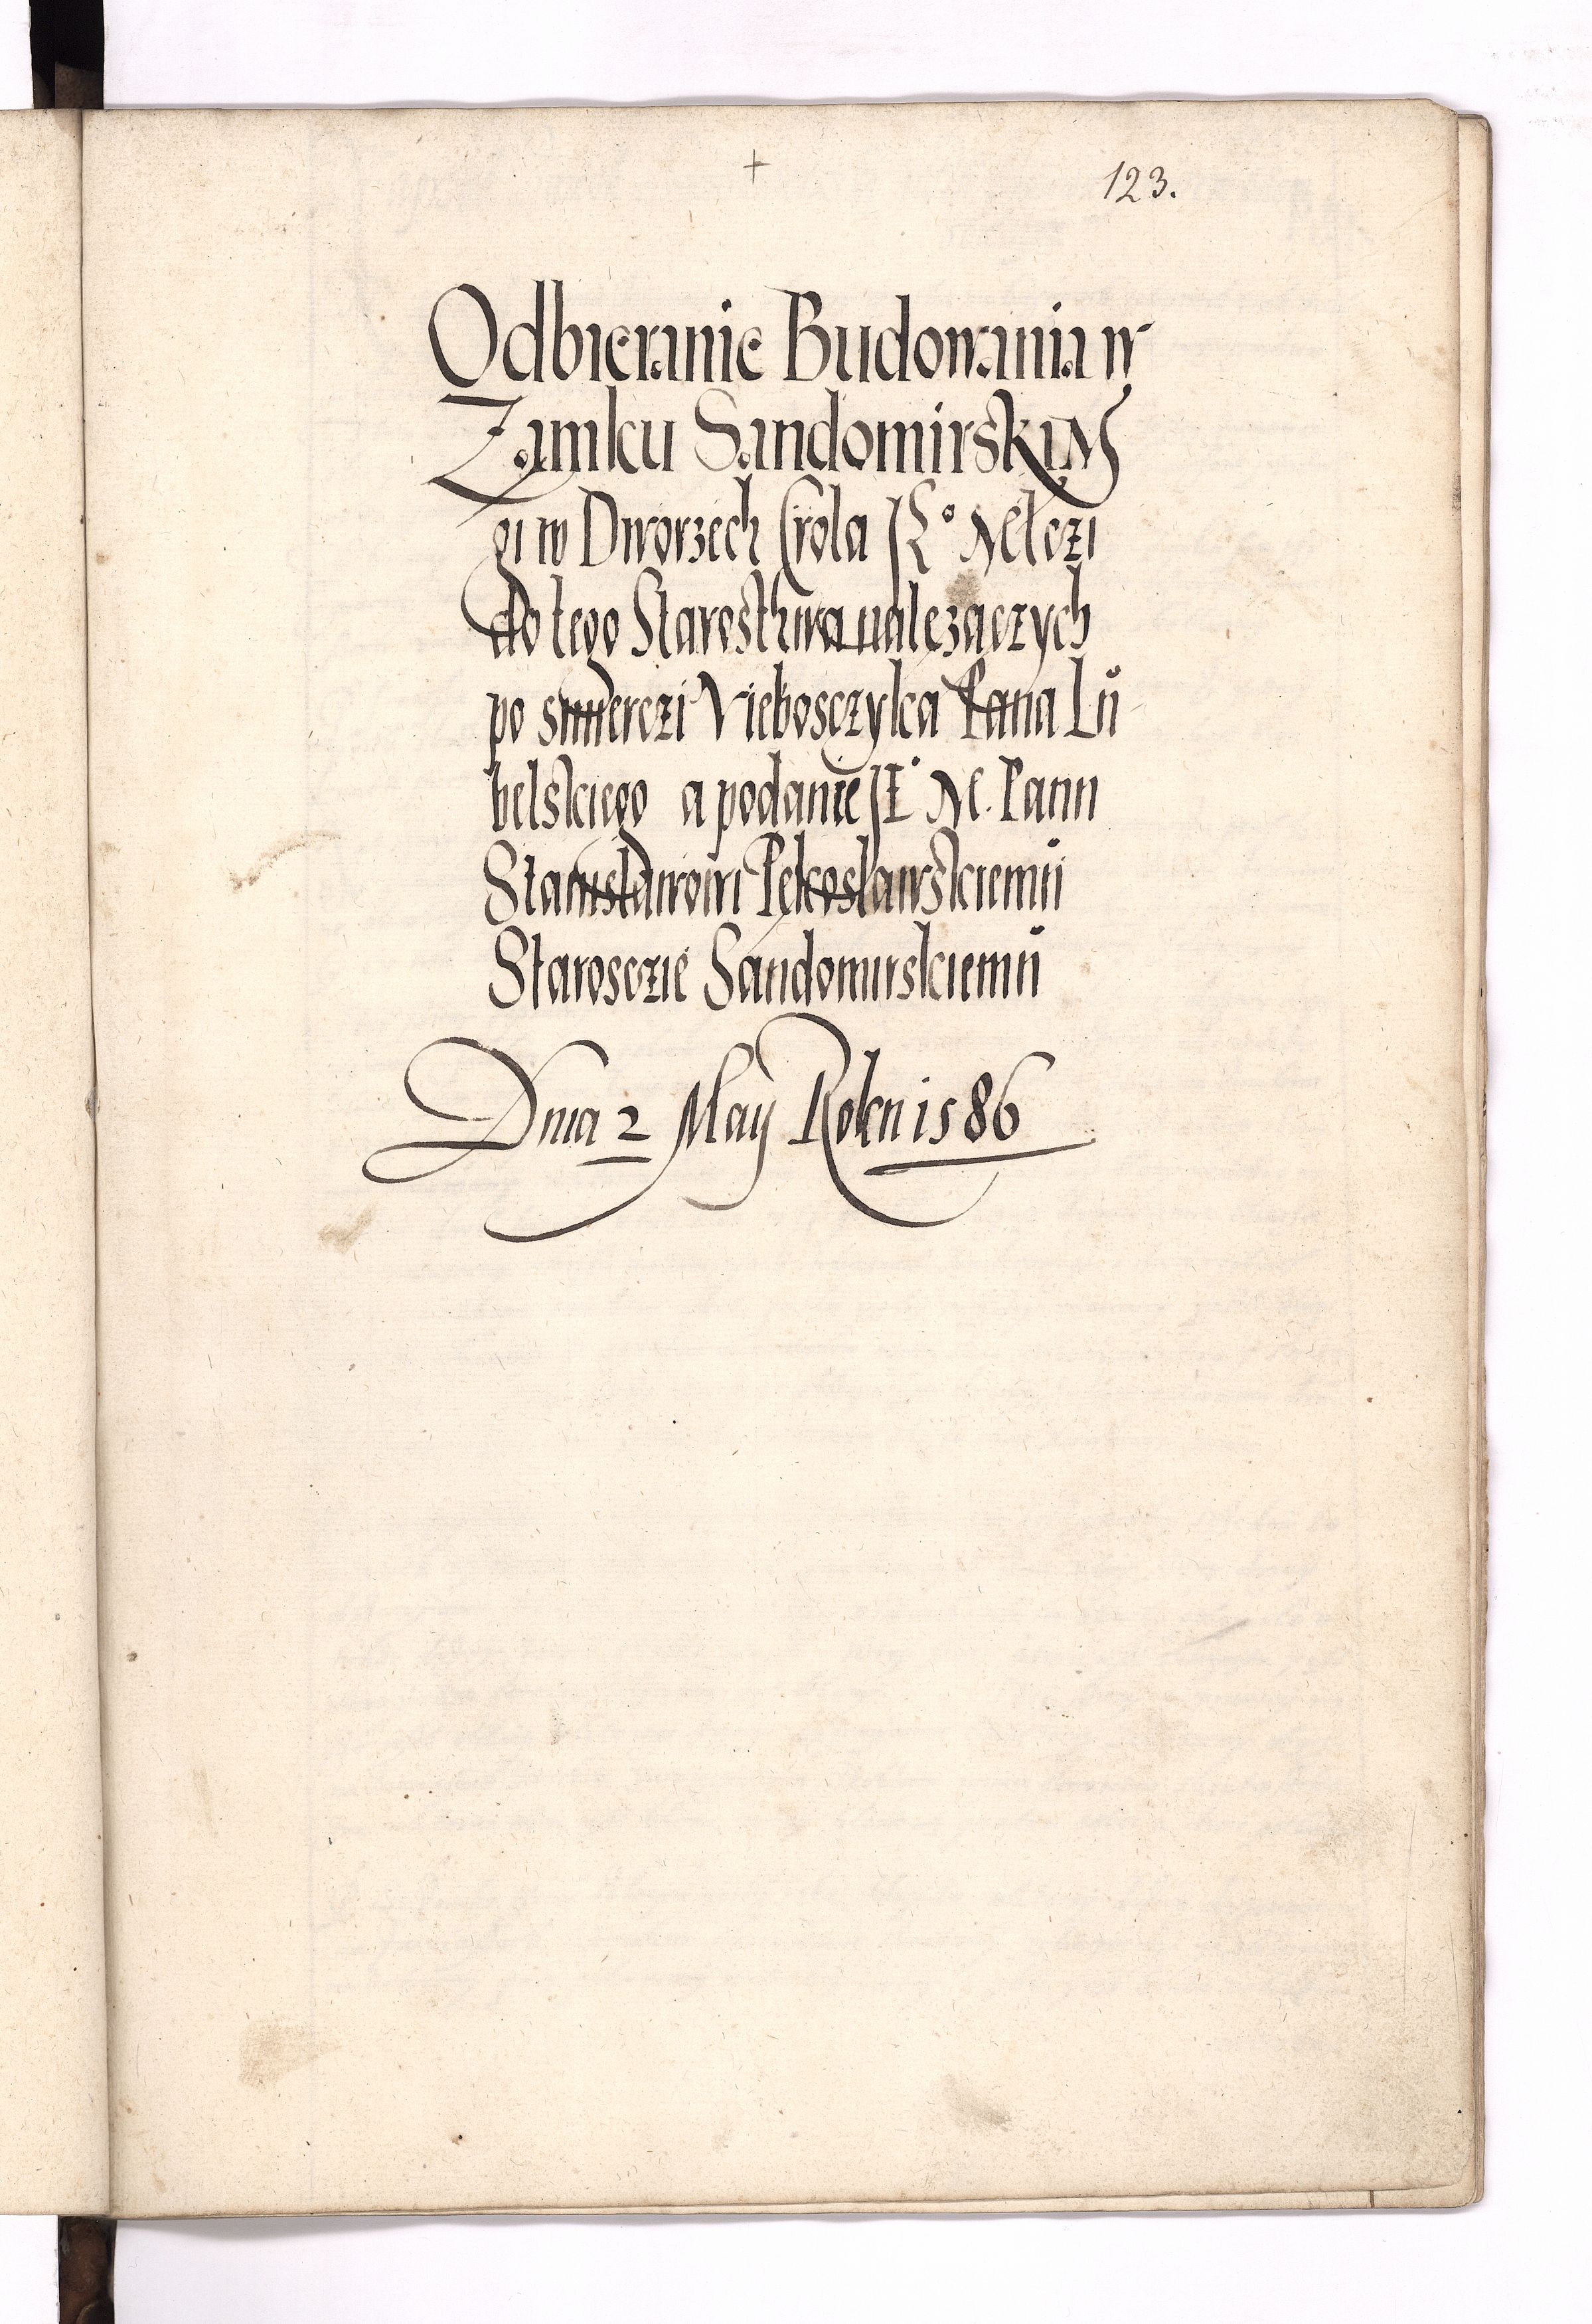 +
123.
Odbieranie Budowania w
Zamku Sandomirskim
gi w Dworzech Crola JKº Mćzi
do tego Starosthwa należączych
po smierczi Nieboszczyka Pana Lu
belskiego a podanie JE° M. Pann
Stanisławowi Pękosławskiemu
Starosczie Sandomirskiemu
Dnia 2 May Roku 1586